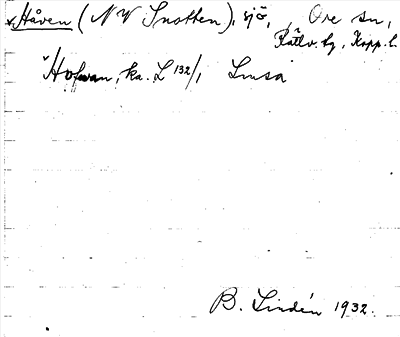 Håven (NW Snotten), sjö, Ore sn,
Rättv. tg, Kopp. l.
Hofwan, ka. L 132/1 Linsa
B. Lindén 1932.